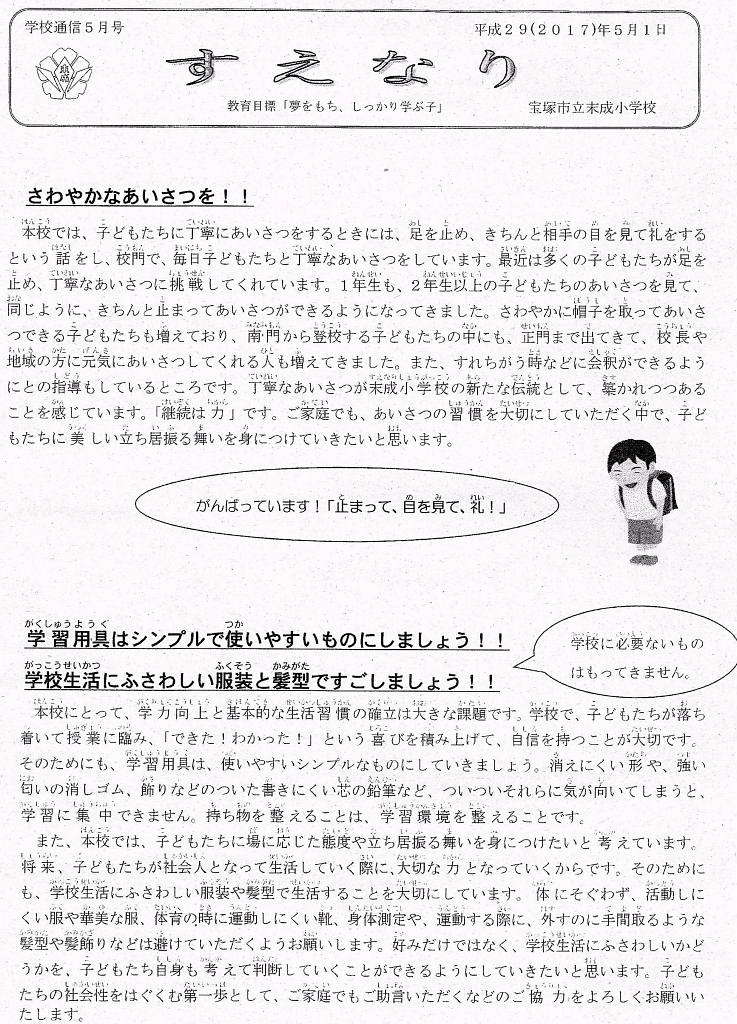 学校通信5月号
平成29(2017)年5月1日
すえなり
教育目標「夢をもち、しっかり学ぶ子」
宝塚市立末成小学校
さわやかなあいさつを！！
本校では、子どもたちに丁寧にあいさつをするときには、足を止め、きちんと相手の目を見て礼をする
という話をし、校門で、毎日子どもたちと丁寧なあいさつをしています。最近は多くの子どもたちが足を
止め、丁寧なあいさつに挑戦してくれています。1年生も、2年生以上の子どもたちのあいさつを見て、
同じように、きちんと止まってあいさつができるようになってきました。さわやかに帽子を取ってあいさ
つできる子どもたちも増えており、南門から登校する子どもたちの中にも、正門まで出てきて、校長や
地域の方に元気にあいさつしてくれる人も増えてきました。また、すれちがう時などに会釈ができるよう
にとの指導もしているところです。丁寧なあいさつが末成小学校の新たな伝統として、築かれつつある
ことを感じています。「継続は力」です。ご家庭でも、あいさつの習慣を大切にしていただく中で、子ど
もたちに美しい立ち居振る舞いを身につけていきたいと思います。
がんばっています！「止まって、目を見て、礼！」
学習用具はシンプルで使いやすいものにしましょう！！
学校生活にふさわしい服装と髪型ですごしましょう！！
学校に必要ないもの
はもってきません。
本校にとって、学力向上と基本的な生活習慣の確立は大きな課題です。学校で、子どもたちが落ち
着いて授業に臨み、「できた！わかった！」という喜びを積み上げて、自信を持つことが大切です。
そのためにも、学習用具は、使いやすいシンプルなものにしていきましょう。消えにくい形や、強い
匂いの消しゴム、飾りなどのついた書きにくい芯の鉛筆など、ついついそれらに気が向いてしまうと、
学習に集中できません。持ち物を整えることは、学習環境を整えることです。
また、本校では、子どもたちに場に応じた態度や立ち居振る舞いを身につけたいと考えています。
将来、子どもたちが社会人となって生活していく際に、大切な力となっていくからです。そのために
も、学校生活にふさわしい服装や髪型で生活することを大切にしています。体にそぐわず、活動しに
くい服や華美な服、体育の時に運動しにくい靴、身体測定や、運動する際に、外すのに手間取るような
髪型や髪飾りなどは避けていただくようお願いします。好みだけではなく、学校生活にふさわしいかど
うかを、子どもたち自身も考えて判断していくことができるようにしていきたいと思います。子ども
たちの社会性をはぐくむ第一歩として、ご家庭でもご助言いただくなどのご協力をよろしくお願いい
たします。